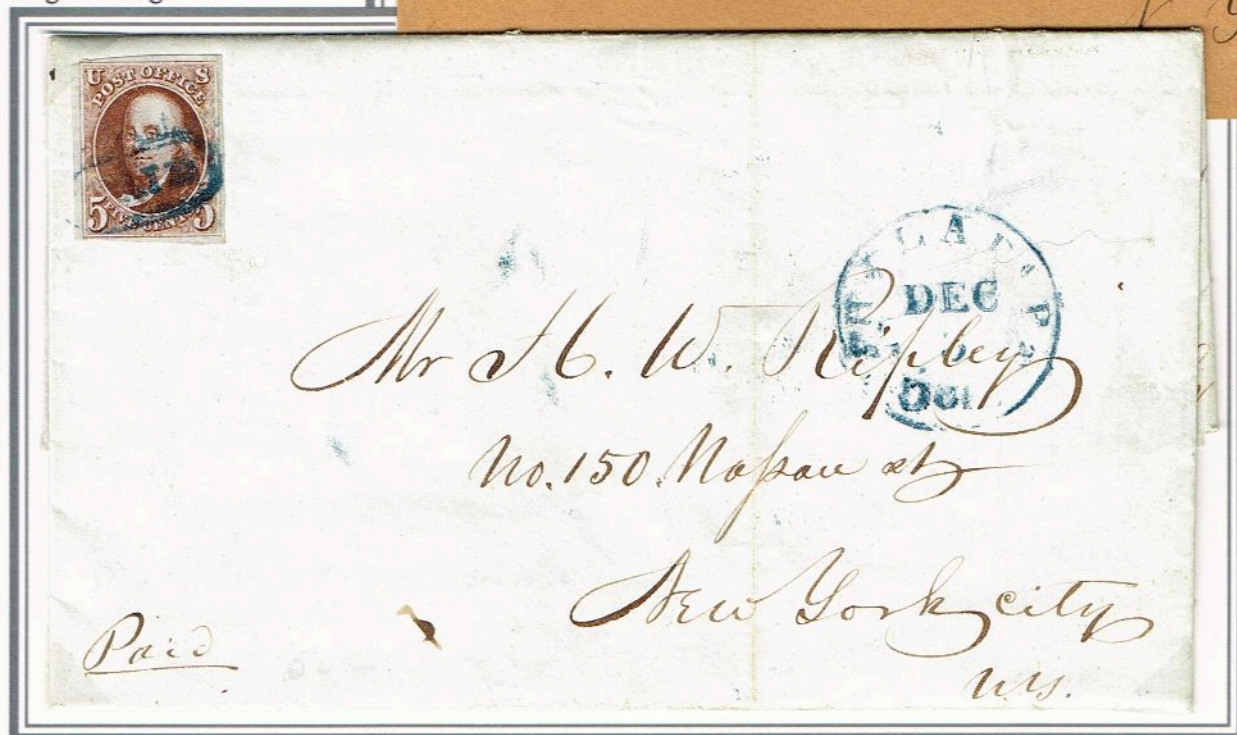 U S
POST OFFICE
5 FIVE CENTS 5
DEC
6
5 cts
Mr H. W. Ripley
No. 150. Nassau st
New York city
N.Y.
Paid